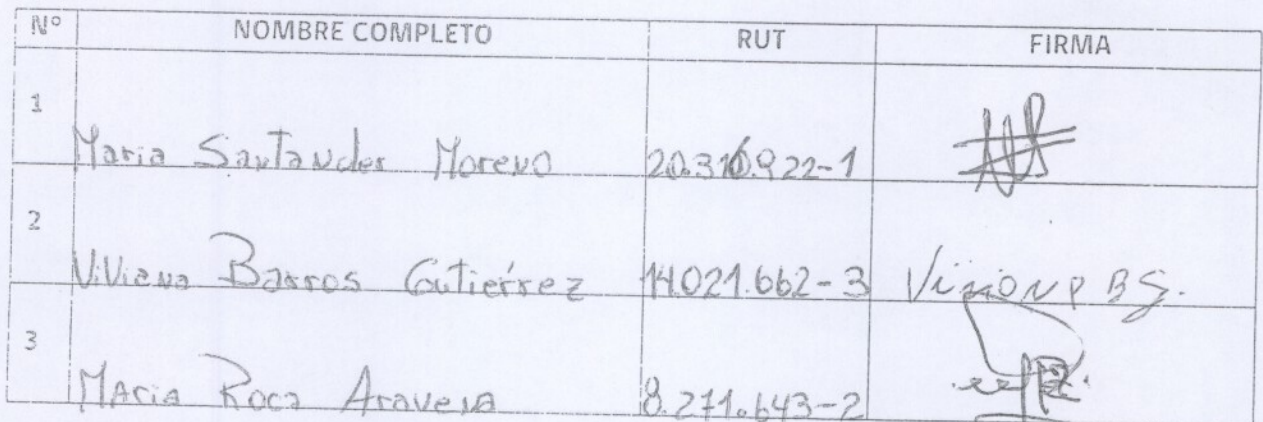 Nº NOMBRE COMPLETO RUT FIRMA
1 Maria Santander Moreno 20.316.922-1
2 Viviana Barros Gutiérrez 14.021.662-3
3 Maria Roca Aravena 8.271.643-2